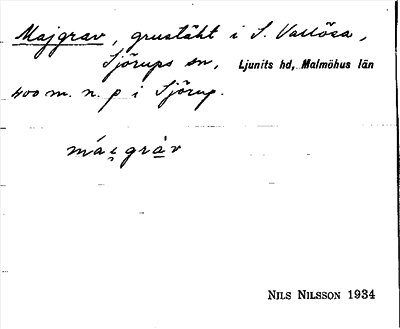 Majgrav, grustäkt i S. Vallösa,
Sjörups sn, Ljunits hd, Malmöhus län
400 m. n. p i Sjörup.
mái̯gràv
NILS NILSSON 1934